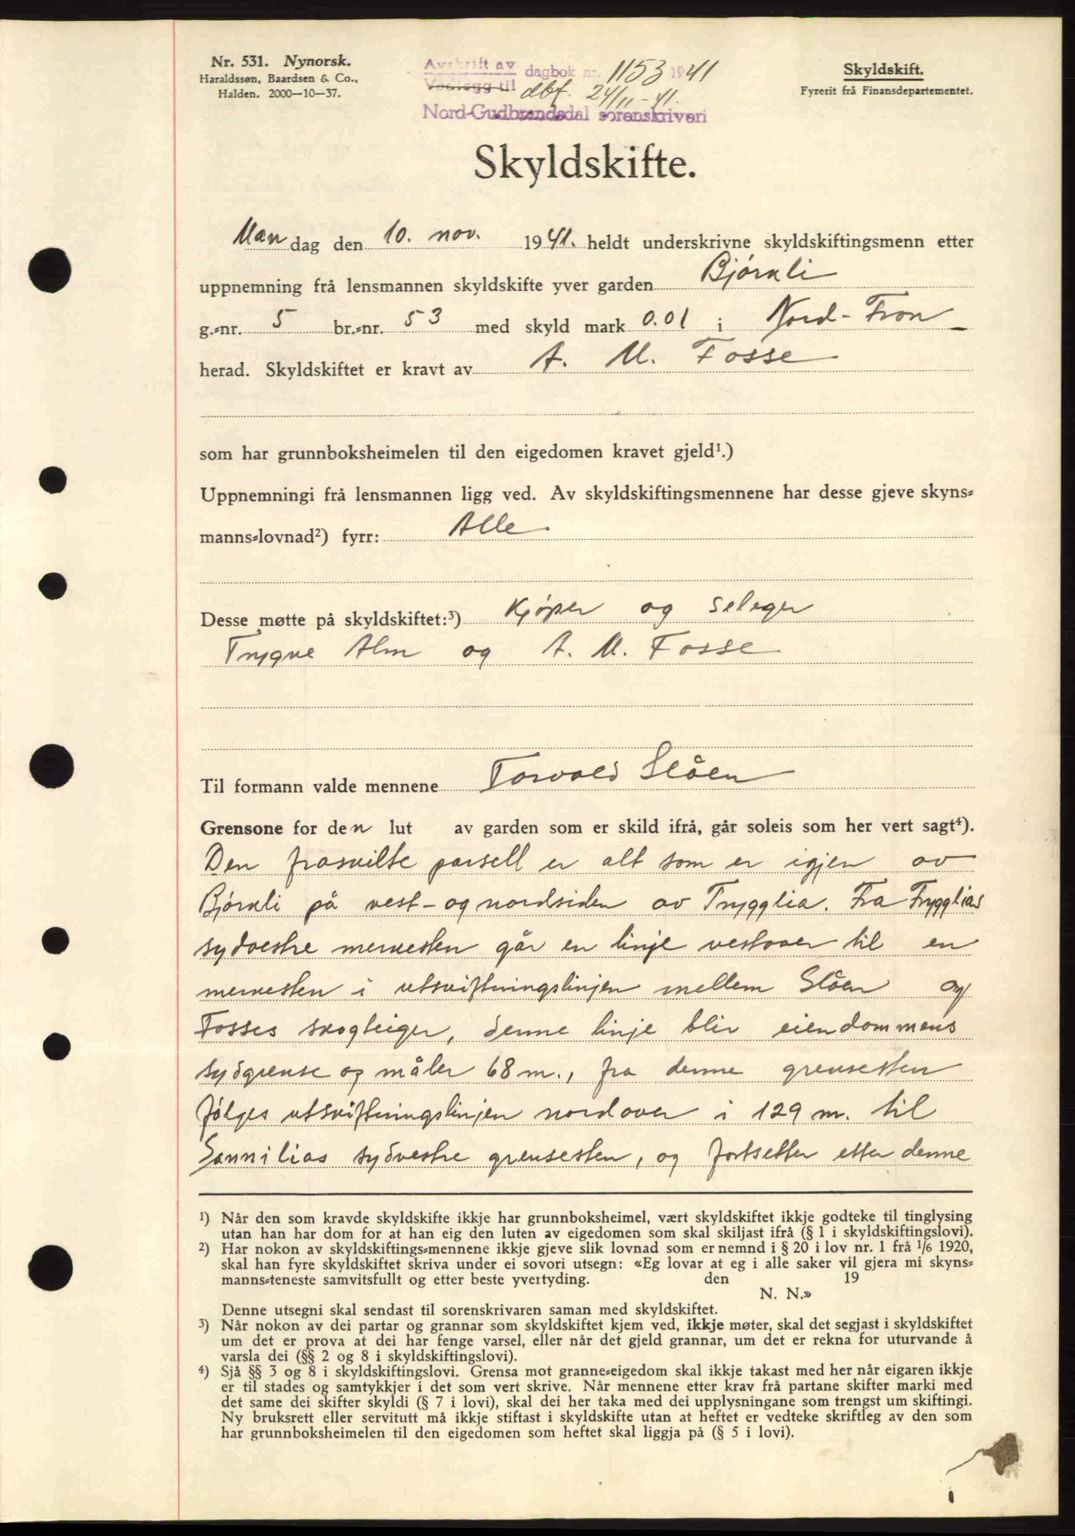 Nr. 531. Nynorsk.
Haraldssøn, Baardsen & Co.,
Halden. 2000—10—37.
Avskrift av
Vedlegg til
dagbok nr. 1153 1941
dbf. 24/11-41.
Nord-Gudbrandsdal sorenskriveri
Skyldskift.
Fyrerit frå Finansdepartementet.
Skyldskifte.
Man dag den 10. nov. 1941. heldt underskrivne skyldskiftingsmenn etter
uppnemning frå lensmannen skyldskifte yver garden Bjørnli
g.-nr. 5 br.-nr. 53 med skyld mark 0.01 i Nord-Fron
herad. Skyldskiftet er kravt av A. M. Fosse
som har grunnboksheimelen til den eigedomen kravet gjeld¹.)
Uppnemningi frå lensmannen ligg ved. Av skyldskiftingsmennene har desse gjeve skyns-
manns-lovnad²) fyrr: Alle.
Desse møtte på skyldskiftet:³) Kjøper og seleger
Trygve Alm og A. M. Fosse
Til formann valde mennene Torvald Slåen
Grensone for den lut av garden som er skild ifrå, går soleis som her vert sagt⁴).
Den fraskilte parsell er alt som er igjen av
Bjørnli på vest- og nordsiden av Trygglia. Fra Trygglias
sydvestre merkesten går en linje vestover til en
merkesten i utskiftningslinjen mellem Slåen og
Fosses skogteiger, denne linje blir eiendommens
sydgrense og måler 68 m., fra denne grensesten
følges utskiftningslinjen nordover i 129 m. til
Sannilias sydvestre grensesten, og fortsetter etter denne
¹) Når den som kravde skyldskifte ikkje har grunnboksheimel, vært skyldskiftet ikkje godteke til tinglysing
utan han har dom for at han eig den luten av eigedomen som skal skiljast ifrå (§ 1 i skyldskiftingslovi).
²) Har nokon av skyldskiftings-mennene ikkje gjeve slik lovnad som er nemnd i § 20 i lov nr. 1 frå 1/6 1920,
skal han fyre skyldskiftet skriva under ei sovori utsegn: «Eg lovar at eg i alle saker vil gjera mi skyns-
manns-teneste samvitsfullt og etter beste yvertyding. den 19
N. N.»
Denne utsegni skal sendast til sorenskrivaren saman med skyldskiftet.
³) Når nokon av dei partar og grannar som skyldskiftet kjem ved, ikkje møter, skal det segjast i skyldskiftet
um det er prova at dei har fenge varsel, eller når det gjeld grannar, um det er rekna for uturvande å
varsla dei (§§ 2 og 8 i skyldskiftingslovi).
⁴) Sjå §§ 3 og 8 i skyldskiftingslovi. Grensa mot granne-eigedom skal ikkje takast med her når eigaren ikkje
er til stades og samtykkjer i det som vert skrive. Når mennene etter krav frå partane skifter marki med
det same dei skifter skyldi (§ 7 i lovi), skal dei her taka med dei upplysningane som trengst um skiftingi.
Ny bruksrett eller servitutt må ikkje stiftast i skyldskifte utan at heftet er vedteke skriftleg av den som
har grunnboksheimelen til den eigedomen som heftet skal liggja på (§ 5 i lovi).